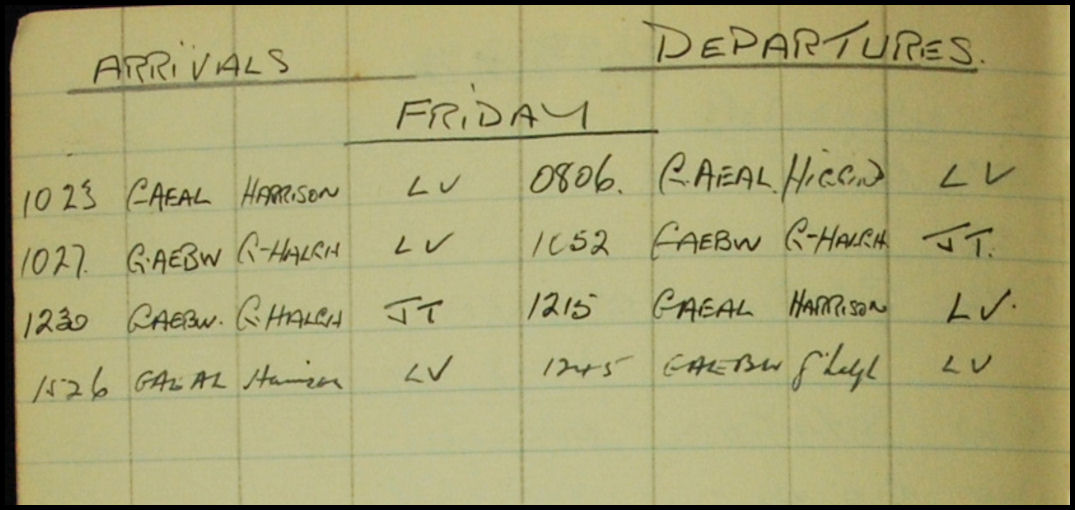 ARRIVALS DEPARTURES.
FRIDAY
1023 GAEAL HARRISON LV 0806. G.AEAL HIGGIN LV
1027. G.AEBW G-HALGH LV 1052 GAEBW G-HALGH JT.
1230 GAEBW. G-HALGH JT 1215 GAEAL HARRISON LV.
1526 GAEAL Harrison LV 1245 GAEBW LV